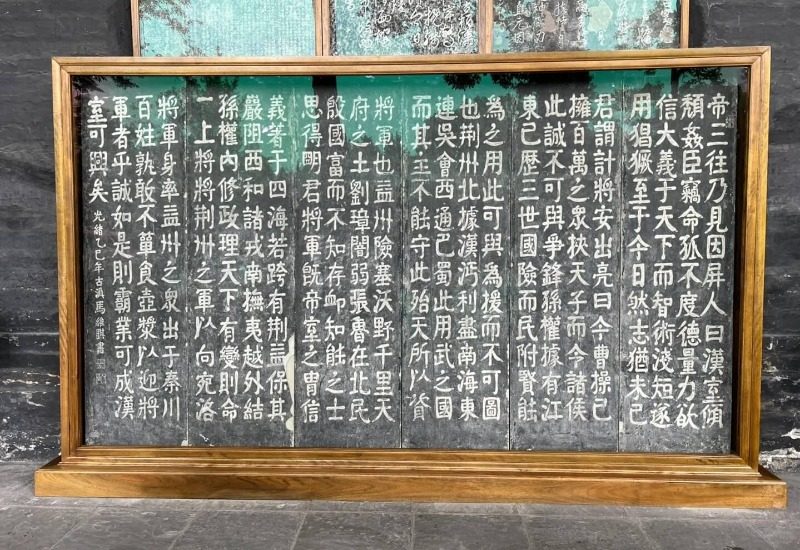 帝三往乃見因屏人曰漢室傾
頹姦臣竊命孤不度德量力欲
信大義于天下而智術淺短遂
用猖獗至于今日然志猶未已
君謂計將安出亮曰今曹操已
擁百萬之眾挾天子而令諸侯
此誠不可與爭鋒孫權據有江
東已歷三世國險而民附賢能
為之用此可與為援而不可圖
也荆州北據漢沔利盡南海東
連吳會西通巴蜀此用武之國
而其主不能守此殆天所以資
將軍也益州險塞沃野千里天
府之土劉璋闇弱張魯在北民
殷國富而不知存卹知能之士
思得明君將軍旣帝室之胄信
義著于四海若跨有荆益保其
巖阻西和諸戎南撫夷越外結
孫權內修政理天下有變則命
一上將將荆州之軍以向宛洛
將軍身率益州之眾出于秦川
百姓孰敢不簞食壺漿以迎將
軍者乎誠如是則霸業可成漢
室可興矣 光緒乙巳年古滇馬維騏書